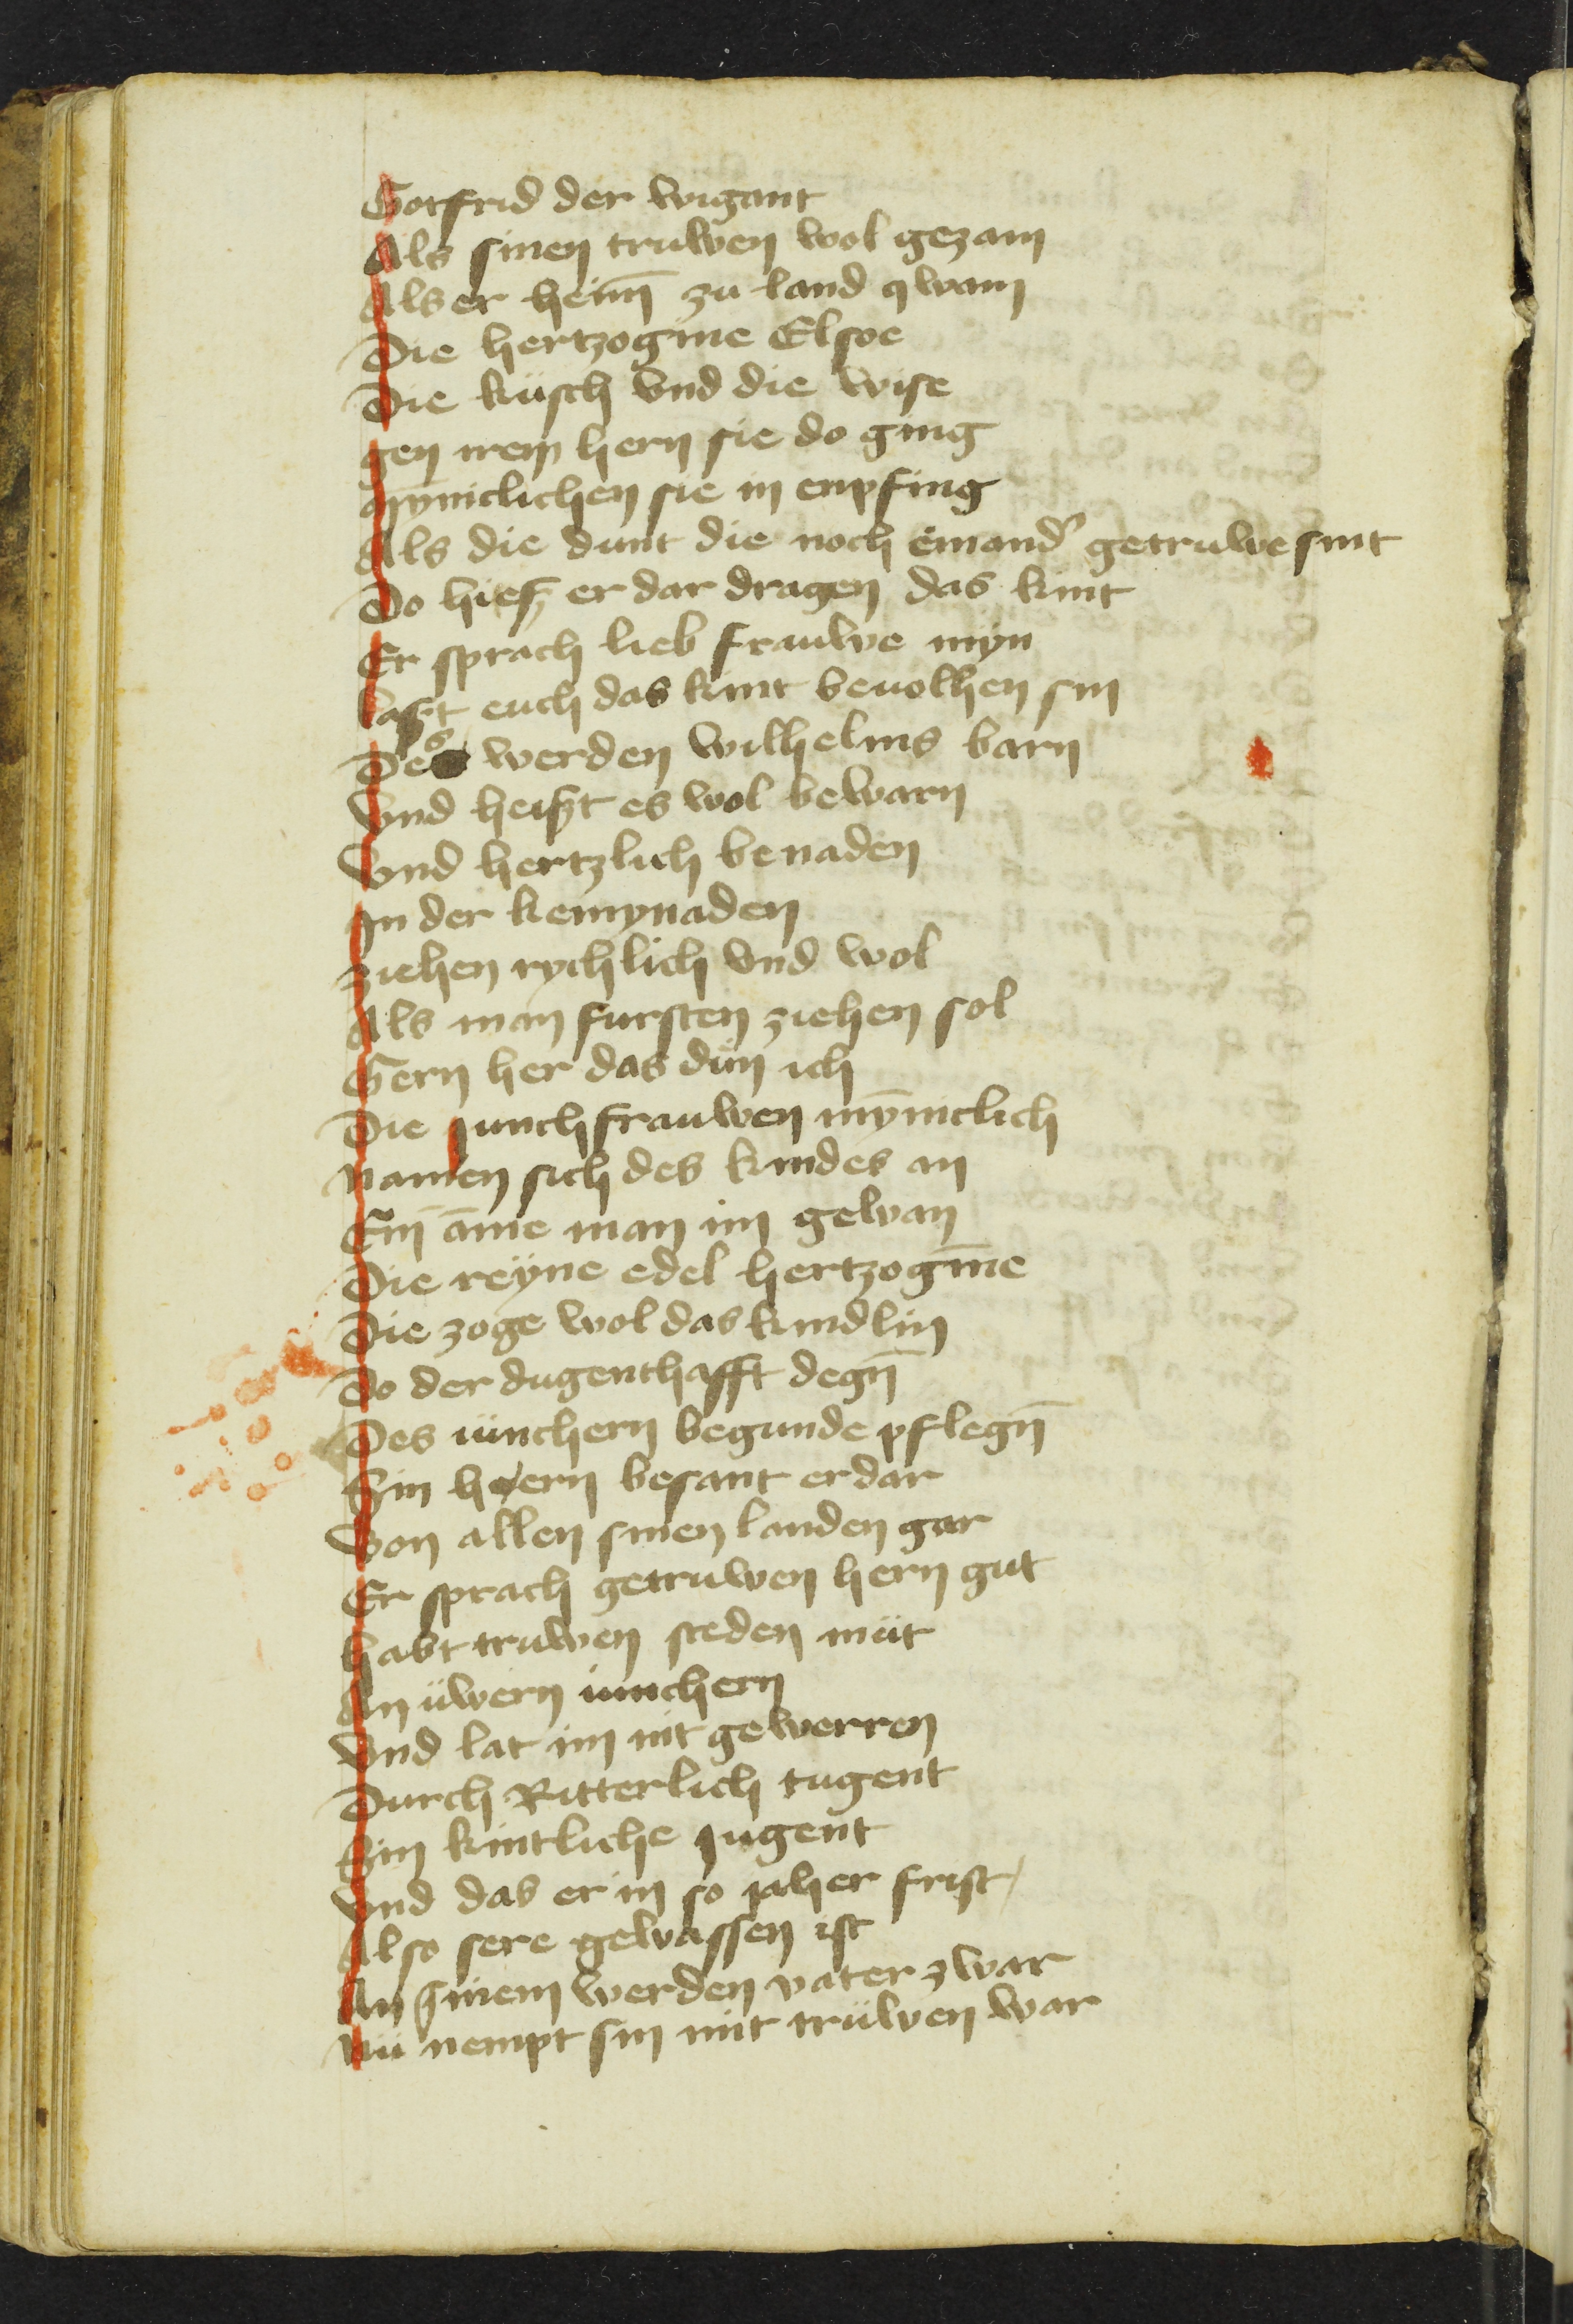 Gotfrid der wigant
Als sinen truwen wol gezam
Als er heim̄ zu land qwam
Die hertzogine Elsoe
Die küsch vnd die wise
gen irem hern sie do ging
mȳniclichen sie in enpfing
Als die dunt die noch einand' getruwe sint
Do hieß er dar dragen das kint
Er sprach lieb frauwe myn
laßt euch das kint beuolhen sin
Des werden wilhelms barn
Vnd heißt es wol bewarn
Vnd hertzlich benaden
In der kemynaden
ziehen rychlich vnd wol
Als man fursten ziehen sol
Gern her das dün ich
Die junchfrauwen mȳniclich
namen sich des kindes an
Ein āme man im gewan
Die reyne edel hertzogīne
Die zoge wol das kindlin
Do der dugenthafft degn̄
Des iünchern begunde pflegn̄
Sin hern besant er dar
Von allen sinen landen gar
Er sprach getruwen hern gut
habt truwen steden müt
An üwern iunchern
Vnd lat im nit gewerren
Durch Ritterlich tugent
Sin kintliche jugent
Vnd das er in so jaher frist
Also sere gewassen ist
An sinem werden vater zwar
Nü nempt sin mit trüwen war